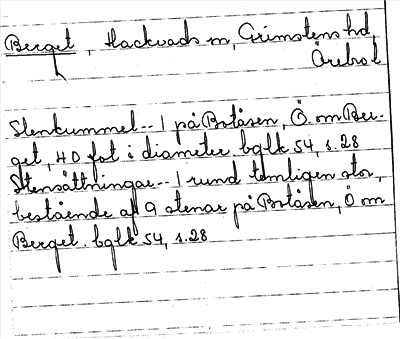 Berget, Hackvads sn, Grimstens hd
Örebro l
Stenkummel -- 1 på Botåsen, Ö. om Ber-
get, 40 fot i diameter. bglk 54, s. 28
Stensättningar -- 1 rund temligen stor,
bestående af 9 stenar på Botåsen, Ö om
Berget. bglk 54, s. 28